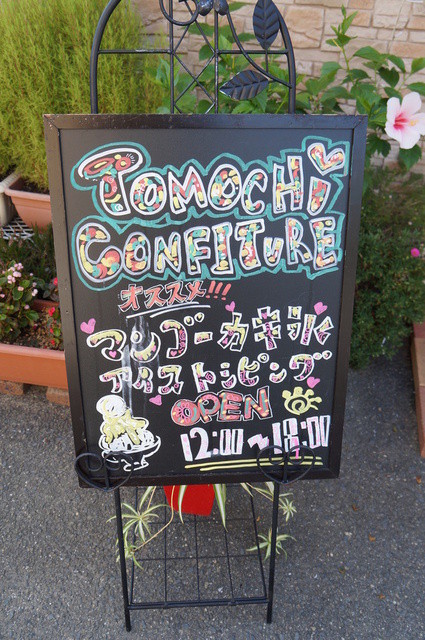 TOMOCHi
CONFiTURE
オススメ!!!
マンゴーカキ氷
アイストッピング
OPEN
12:00~18:00